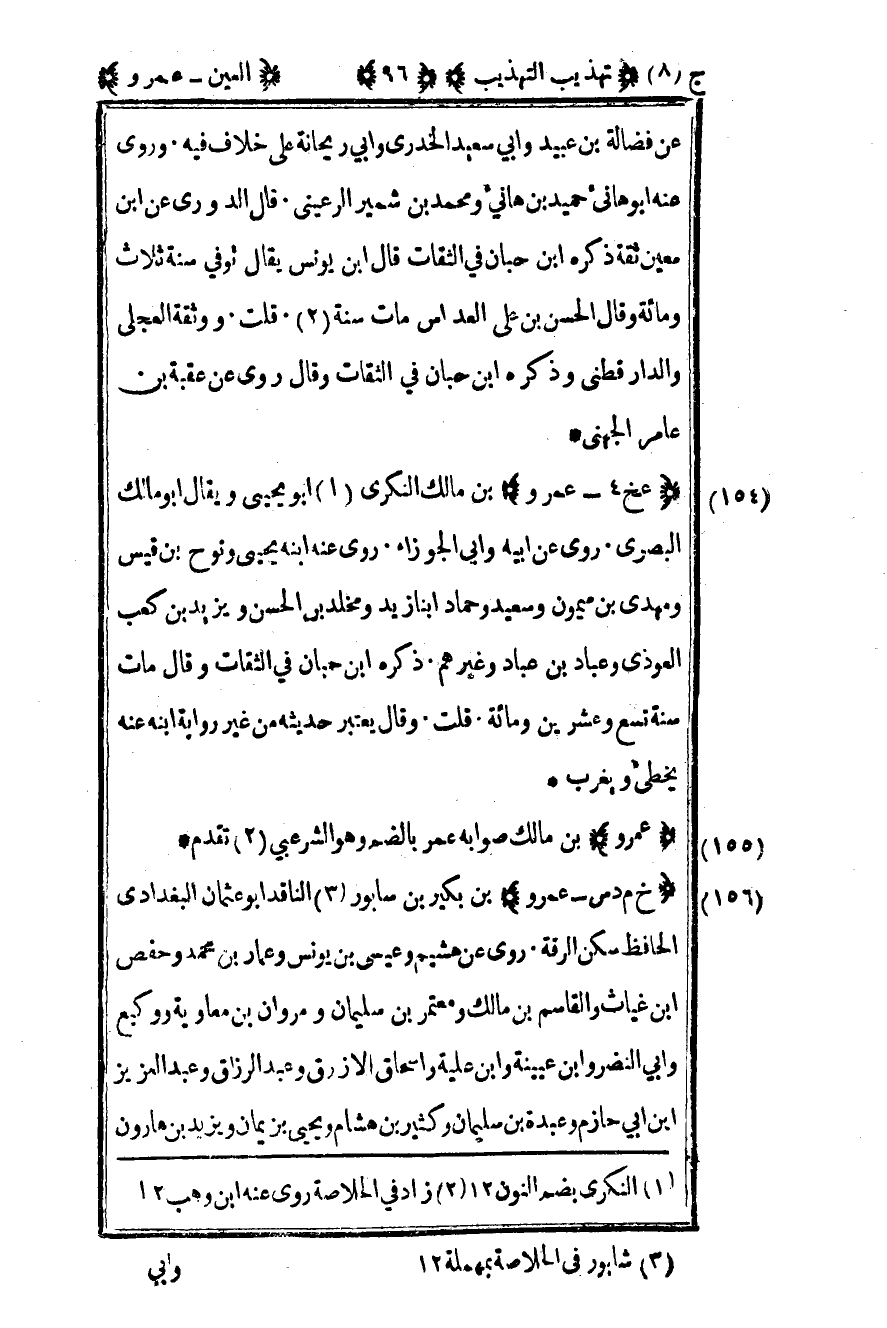 ج (٨) ﴿ تهذيب التهذيب ﴾ ﴿ ٩٦ ﴾ ﴿ العين ـ عمرو ﴾
عن فضالة بن عبيد وابي سعيد الخدرى وابي ريحانة على خلاف فيه · وروى
عنه ابو هانئ حميد بن هانئ ومحمد بن شمير الرعينى · قال الدورى عن ابن
معين ثقة ذكره ابن حبان في الثقات قال ابن يونس يقال توفي سنة ثلاث
ومائة وقال الحسن بن على العداس مات سنة (٢) · قلت · ووثقة العجلى
والدارقطنى وذكره ابن حبان في الثقات وقال روى عن عقبة بن
عامر الجهنى *
(١٥٤) ﴿ عخ ٤ ـ عمرو ﴾ بن مالك النكرى (١) ابو يحيى ويقال ابو مالك
البصرى · روى عن ابيه وابي الجوزاء · روى عنه ابنه يحيى ونوح بن قيس
ومهدى بن ميمون وسعيد وحماد ابنا زيد ومخلد بن الحسن ويزيد بن كعب
العوذى وعباد بن عباد وغيرهم · ذكره ابن حبان في الثقات وقال مات
سنة تسع وعشرين ومائة · قلت · وقال يعتبر حديثه من غير رواية ابنه عنه
يخطئ ويغرب *
(١٥٥) ﴿ عمرو ﴾ بن مالك صوابه عمر بالضم وهو الشرعبي (٢) تقدم *
(١٥٦) ﴿ خ م د س ـ عمرو ﴾ بن بكير بن سابور (٣) الناقد ابو عثمان البغدادى
الحافظ سكن الرقة · روى عن هشيم وعيسى بن يونس وعمار بن محمد وحفص
ابن غياث والقاسم بن مالك ومعتمر بن سليمان ومروان بن معاوية ووكيع
وابي النضر وابن عيينة وابن علية واسحاق الازرق وعبد الرزاق وعبد العزيز
ابن ابي حازم وعبدة بن سليمان وكثير بن هشام ويحيى بن يمان ويزيد بن هارون
(١) النكرى بضم النون ١٢ (٢) زاد في الخلاصة روى عنه ابن وهب ١٢
(٣) شابور فى الخلاصة بمهملة ١٢ وابي